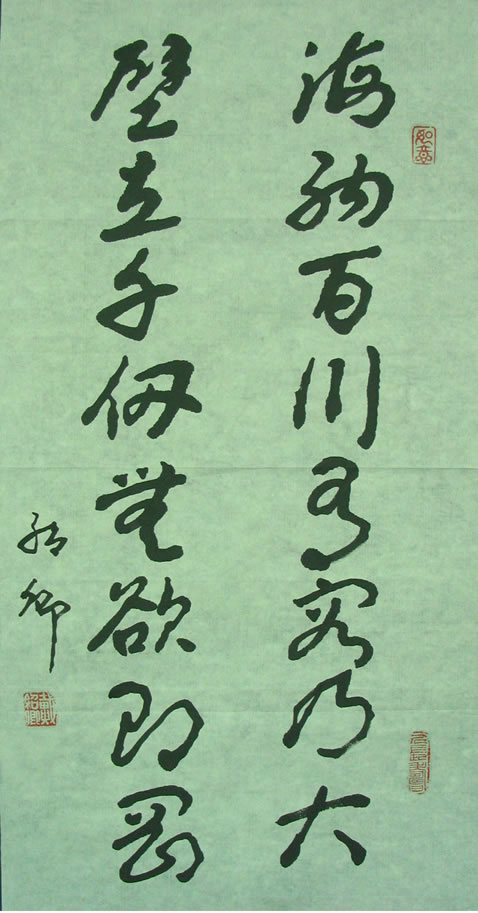 如意
海納百川有容乃大
壁立千仞無欲即剛
紹卿